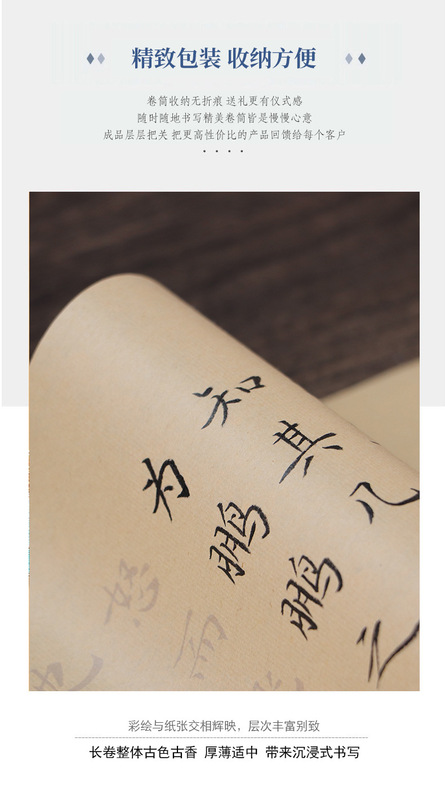 精致包装 收纳方便
卷筒收纳无折痕 送礼更有仪式感
随时随地书写精美卷筒皆是慢慢心意
成品层层把关 把更高性价比的产品回馈给每个客户
几
之
知其
鹏
为鹏
怒
而
彩绘与纸张交相辉映，层次丰富别致
长卷整体古色古香 厚薄适中 带来沉浸式书写